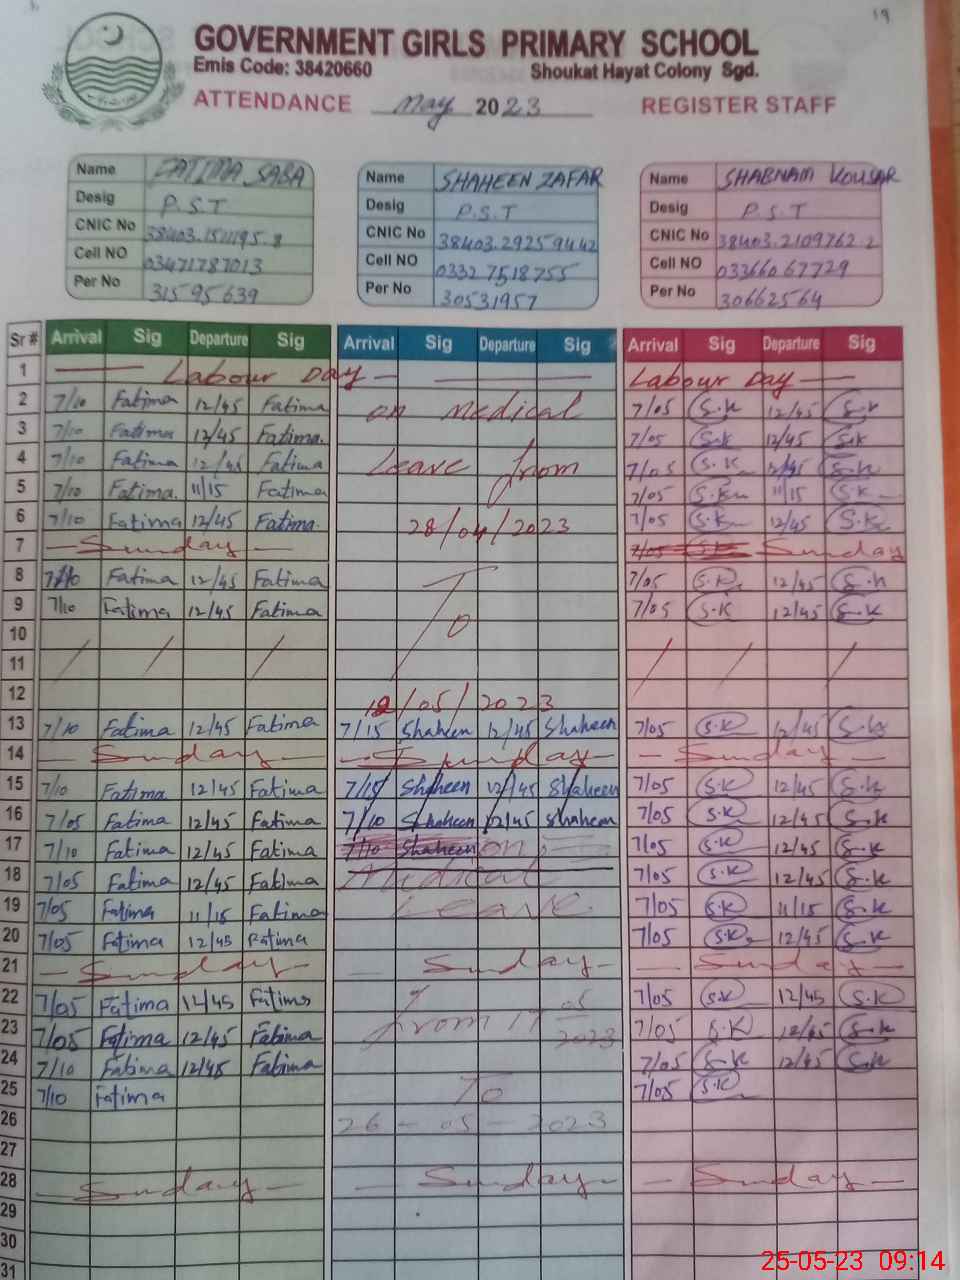 19
GOVERNMENT GIRLS PRIMARY SCHOOL
Emis Code: 38420660 Shoukat Hayat Colony Sgd.
ATTENDANCE May 2023 REGISTER STAFF
Name FATIMA SABA Name SHAHEEN ZAFAR Name SHABNAM KOUSAR
Desig P.S.T Desig P.S.T Desig P.S.T
CNIC No 38403.1511195.8 CNIC No 38403.29259442 CNIC No 38403.2109762 2
Cell NO 03471787013 Cell NO 0332 7518755 Cell NO 0336606 7729
Per No 31595639 Per No 30531957 Per No 30662564
Sr # Arrival Sig Departure Sig Arrival Sig Departure Sig Arrival Sig Departure Sig
1 Labour Day Labour Day
2 7/10 Fatima 12/45 Fatima on Medical 7/05 S.K 12/45 S.K
3 7/10 Fatima 12/45 Fatima. 7/05 S.K 12/45 S.K
4 7/10 Fatima 12/45 Fatima Leave from 7/05 S.K 12/45 S.K
5 7/10 Fatima. 11/15 Fatima 7/05 S.K 11/15 S.K
6 7/10 Fatima 12/45 Fatima. 28/04/2023 7/05 S.K 12/45 S.K
7 Sunday 7/05 S.K Sunday
8 7/10 Fatima 12/45 Fatima To 7/05 S.K 12/45 S.K
9 7/10 Fatima 12/45 Fatima 7/05 S.K 12/45 S.K
10
11
12 12/05/2023
13 7/10 Fatima 12/45 Fatima 7/15 Shaheen 12/45 Shaheen 7/05 S.K 12/45 S.K
14 Sunday Sunday Sunday
15 7/10 Fatima 12/45 Fatima 7/15 Shaheen 12/45 Shaheen 7/05 S.K 12/45 S.K
16 7/05 Fatima 12/45 Fatima 7/10 Shaheen 12/45 Shaheen 7/05 S.K 12/45 S.K
17 7/10 Fatima 12/45 Fatima 7/10 Shaheen on 7/05 S.K 12/45 S.K
18 7/05 Fatima 12/45 Fatima Medical 7/05 S.K 12/45 S.K
19 7/05 Fatima 11/15 Fatima Leave 7/05 S.K 11/15 S.K
20 7/05 Fatima 12/45 Fatima 7/05 S.K 12/45 S.K
21 Sunday Sunday Sunday
22 7/05 Fatima 12/45 Fatima 7/05 S.K 12/45 S.K
23 7/05 Fatima 12/45 Fatima from 17 05 2023 7/05 S.K 12/45 S.K
24 7/10 Fatima 12/45 Fatima 7/05 S.K 12/45 S.K
25 7/10 Fatima To 7/05 S.K
26 26 - 05 - 2023
27
28 Sunday Sunday Sunday
29
30
31
25-05-23 09:14